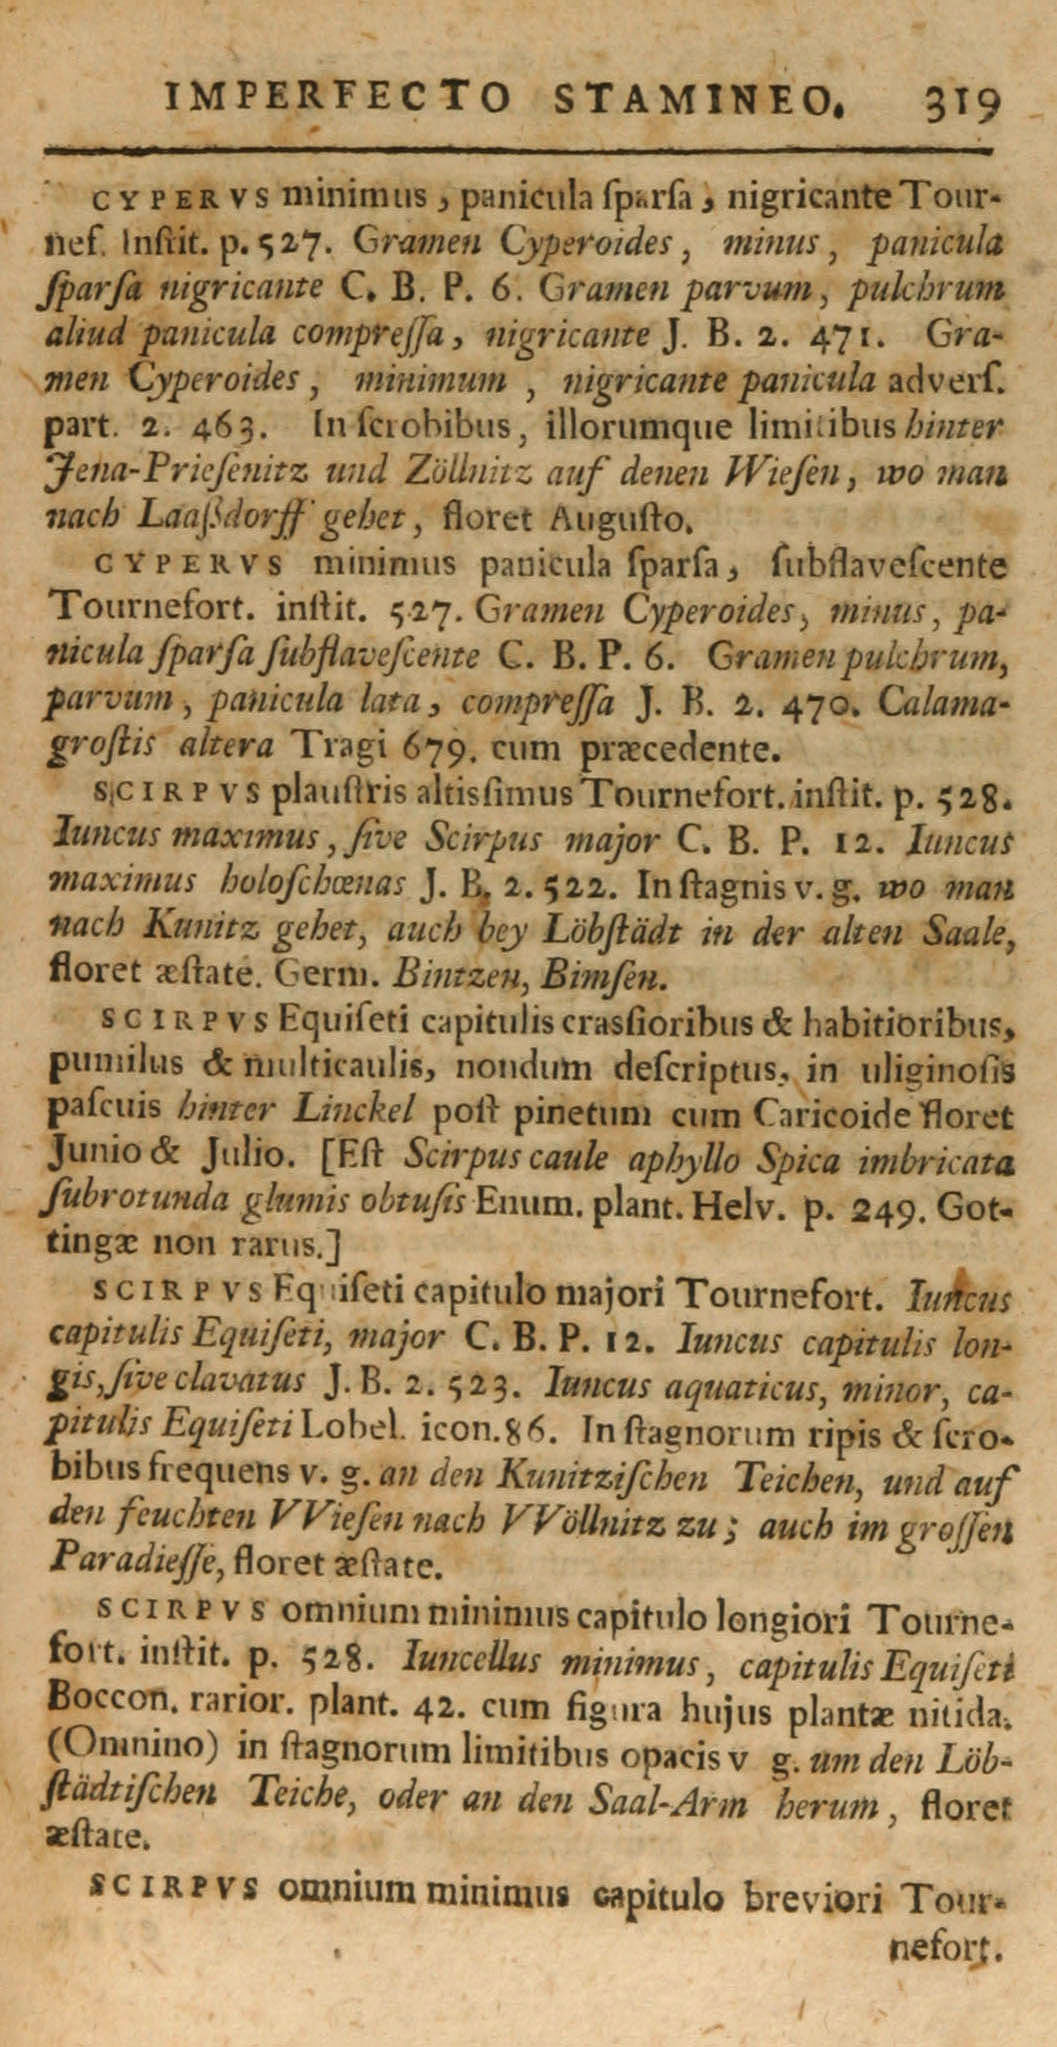 IMPERFECTO STAMINEO. 319
CYPERVS minimus, panicula ſparſa, nigricante Tour-
nef. Inſtit. p. 527. Gramen Cyperoides, minus, panicula
ſparſa nigricante C. B. P. 6. Gramen parvum, pulchrum
aliud panicula compreſſa, nigricante J. B. 2. 471. Gra-
men Cyperoides, minimum, nigricante panicula adverſ.
part. 2. 463. In ſcrobibus, illorumque limitibus hinter
Jena-Prieſenitz und Zöllnitz auf denen Wieſen, wo man
nach Laaßdorff gehet, floret Auguſto.
CYPERVS minimus panicula ſparsa, ſubflaveſcente
Tournefort. inſtit. 527. Gramen Cyperoides, minus, pa-
nicula ſparſa ſubflaveſcente C. B. P. 6. Gramen pulchrum,
parvum, panicula lata, compreſſa J. B. 2. 470. Calama-
groſtis altera Tragi 679. cum præcedente.
SCIRPVS plauſtris altisſimus Tournefort. inſtit. p. 528.
Iuncus maximus, ſive Scirpus major C. B. P. 12. Iuncus
maximus holoſchœnas J. B. 2. 522. In ſtagnis v. g. wo man
nach Kunitz gehet, auch bey Löbſtädt in der alten Saale,
floret æſtate. Germ. Bintzen, Bimſen.
SCIRPVS Equiſeti capitulis crasſioribus & habitioribus,
pumilus & multicaulis, nondum deſcriptus, in uliginoſis
paſcuis hinter Linckel poſt pinetum cum Caricoide floret
Junio & Julio. [Eſt Scirpus caule aphyllo Spica imbricata
ſubrotunda glumis obtuſis Enum. plant. Helv. p. 249. Got-
tingæ non rarus.]
SCIRPVS Equiſeti capitulo majori Tournefort. Iuncus
capitulis Equiſeti, major C. B. P. 12. Iuncus capitulis lon-
gis, ſive clavatus J. B. 2. 523. Iuncus aquaticus, minor, ca-
pitulis Equiſeti Lobel. icon. 86. In ſtagnorum ripis & ſcro-
bibus frequens v. g. an den Kunitziſchen Teichen, und auf
den feuchten VVieſen nach VVöllnitz zu; auch im groſſen
Paradieſſe, floret æſtate.
SCIRPVS omnium minimus capitulo longiori Tourne-
fort. inſtit. p. 528. Iuncellus minimus, capitulis Equiſeti
Boccon. rarior. plant. 42. cum figura hujus plantæ nitida.
(Omnino) in ſtagnorum limitibus opacis v g. um den Löb-
ſtädtiſchen Teiche, oder an den Saal-Arm herum, floret
æſtate.
SCIRPVS omnium minimus capitulo breviori Tour-
nefort.